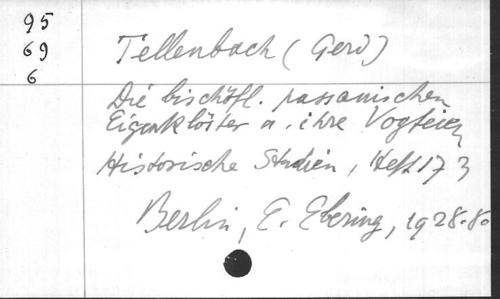 95
69
6
Tellenbach (Gerd)
Die bischöfl. passauischen
Eigenklöster u. ihre Vogteien
Historische Studien, Heft 173
Berlin, E. Ebering, 1928. 8o